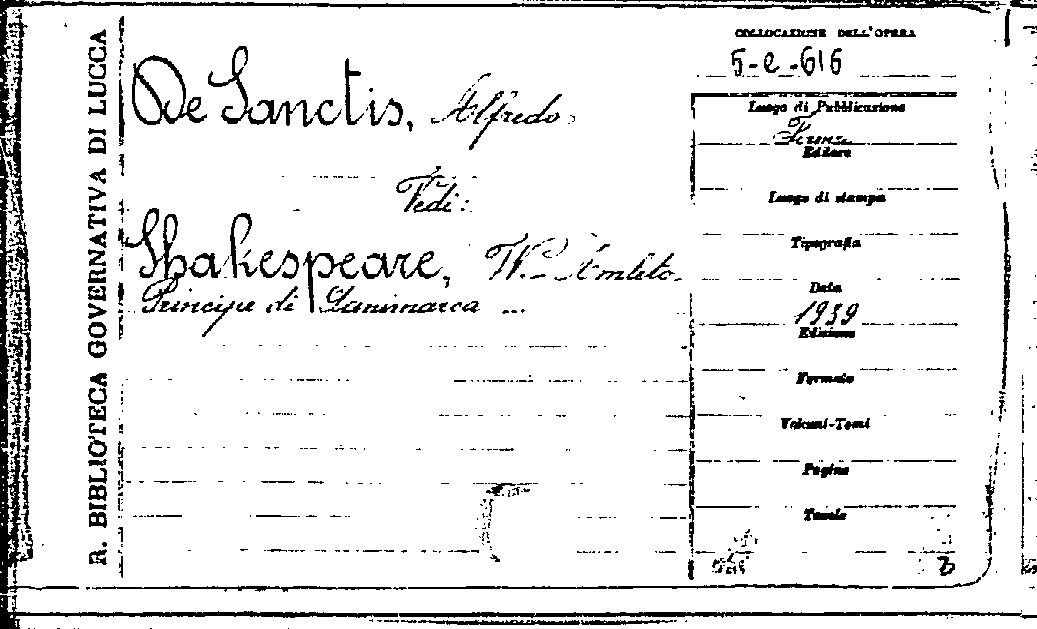 R. BIBLIOTECA GOVERNATIVA DI LUCCA
COLLOCAZIONE DELL'OPERA
5-e-616
De Sanctis, Alfredo
Vedi:
Shakespeare, W. - Amleto
Principe di Danimarca ...
Luogo di Pubblicazione
Editore
Luogo di stampa
Tipografia
Data
1939
Edizione
Formato
Volumi-Tomi
Pagine
Tavole